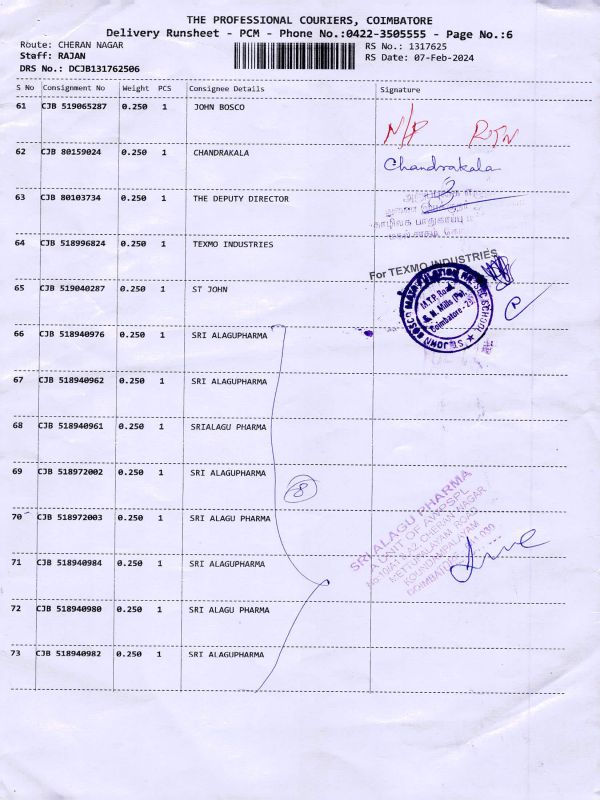 THE PROFESSIONAL COURIERS, COIMBATORE
Delivery Runsheet - PCM - Phone No.:0422-3505555 - Page No.:6
Route: CHERAN NAGAR RS No.: 1317625
Staff: RAJAN RS Date: 07-Feb-2024
DRS No.: DCJB131762506
S No Consignment No Weight PCS Consignee Details Signature
61 CJB 519065287 0.250 1 JOHN BOSCO
N/P RTN
62 CJB 80159024 0.250 1 CHANDRAKALA Chandrakala
63 CJB 80103734 0.250 1 THE DEPUTY DIRECTOR 3
64 CJB 518996824 0.250 1 TEXMO INDUSTRIES
For TEXMO INDUSTRIES
65 CJB 519040287 0.250 1 ST JOHN
ST. JOHN BOSCO MATRICULATION HR. SEC. SCHOOL
M.T.P. Road
S. R. Mills (Po),
Coimbatore - 29
66 CJB 518940976 0.250 1 SRI ALAGUPHARMA
67 CJB 518940962 0.250 1 SRI ALAGUPHARMA
68 CJB 518940961 0.250 1 SRIALAGU PHARMA
69 CJB 518972002 0.250 1 SRI ALAGUPHARMA
8
70 CJB 518972003 0.250 1 SRI ALAGU PHARMA
SRI ALAGU PHARMA
A UNIT OF AWPSPL
CHERAN NAGAR
METTUPALAYAM ROAD
KOUNDAMPALAYAM
COIMBATORE - 641 030
71 CJB 518940984 0.250 1 SRI ALAGUPHARMA
72 CJB 518940980 0.250 1 SRI ALAGU PHARMA
73 CJB 518940982 0.250 1 SRI ALAGUPHARMA